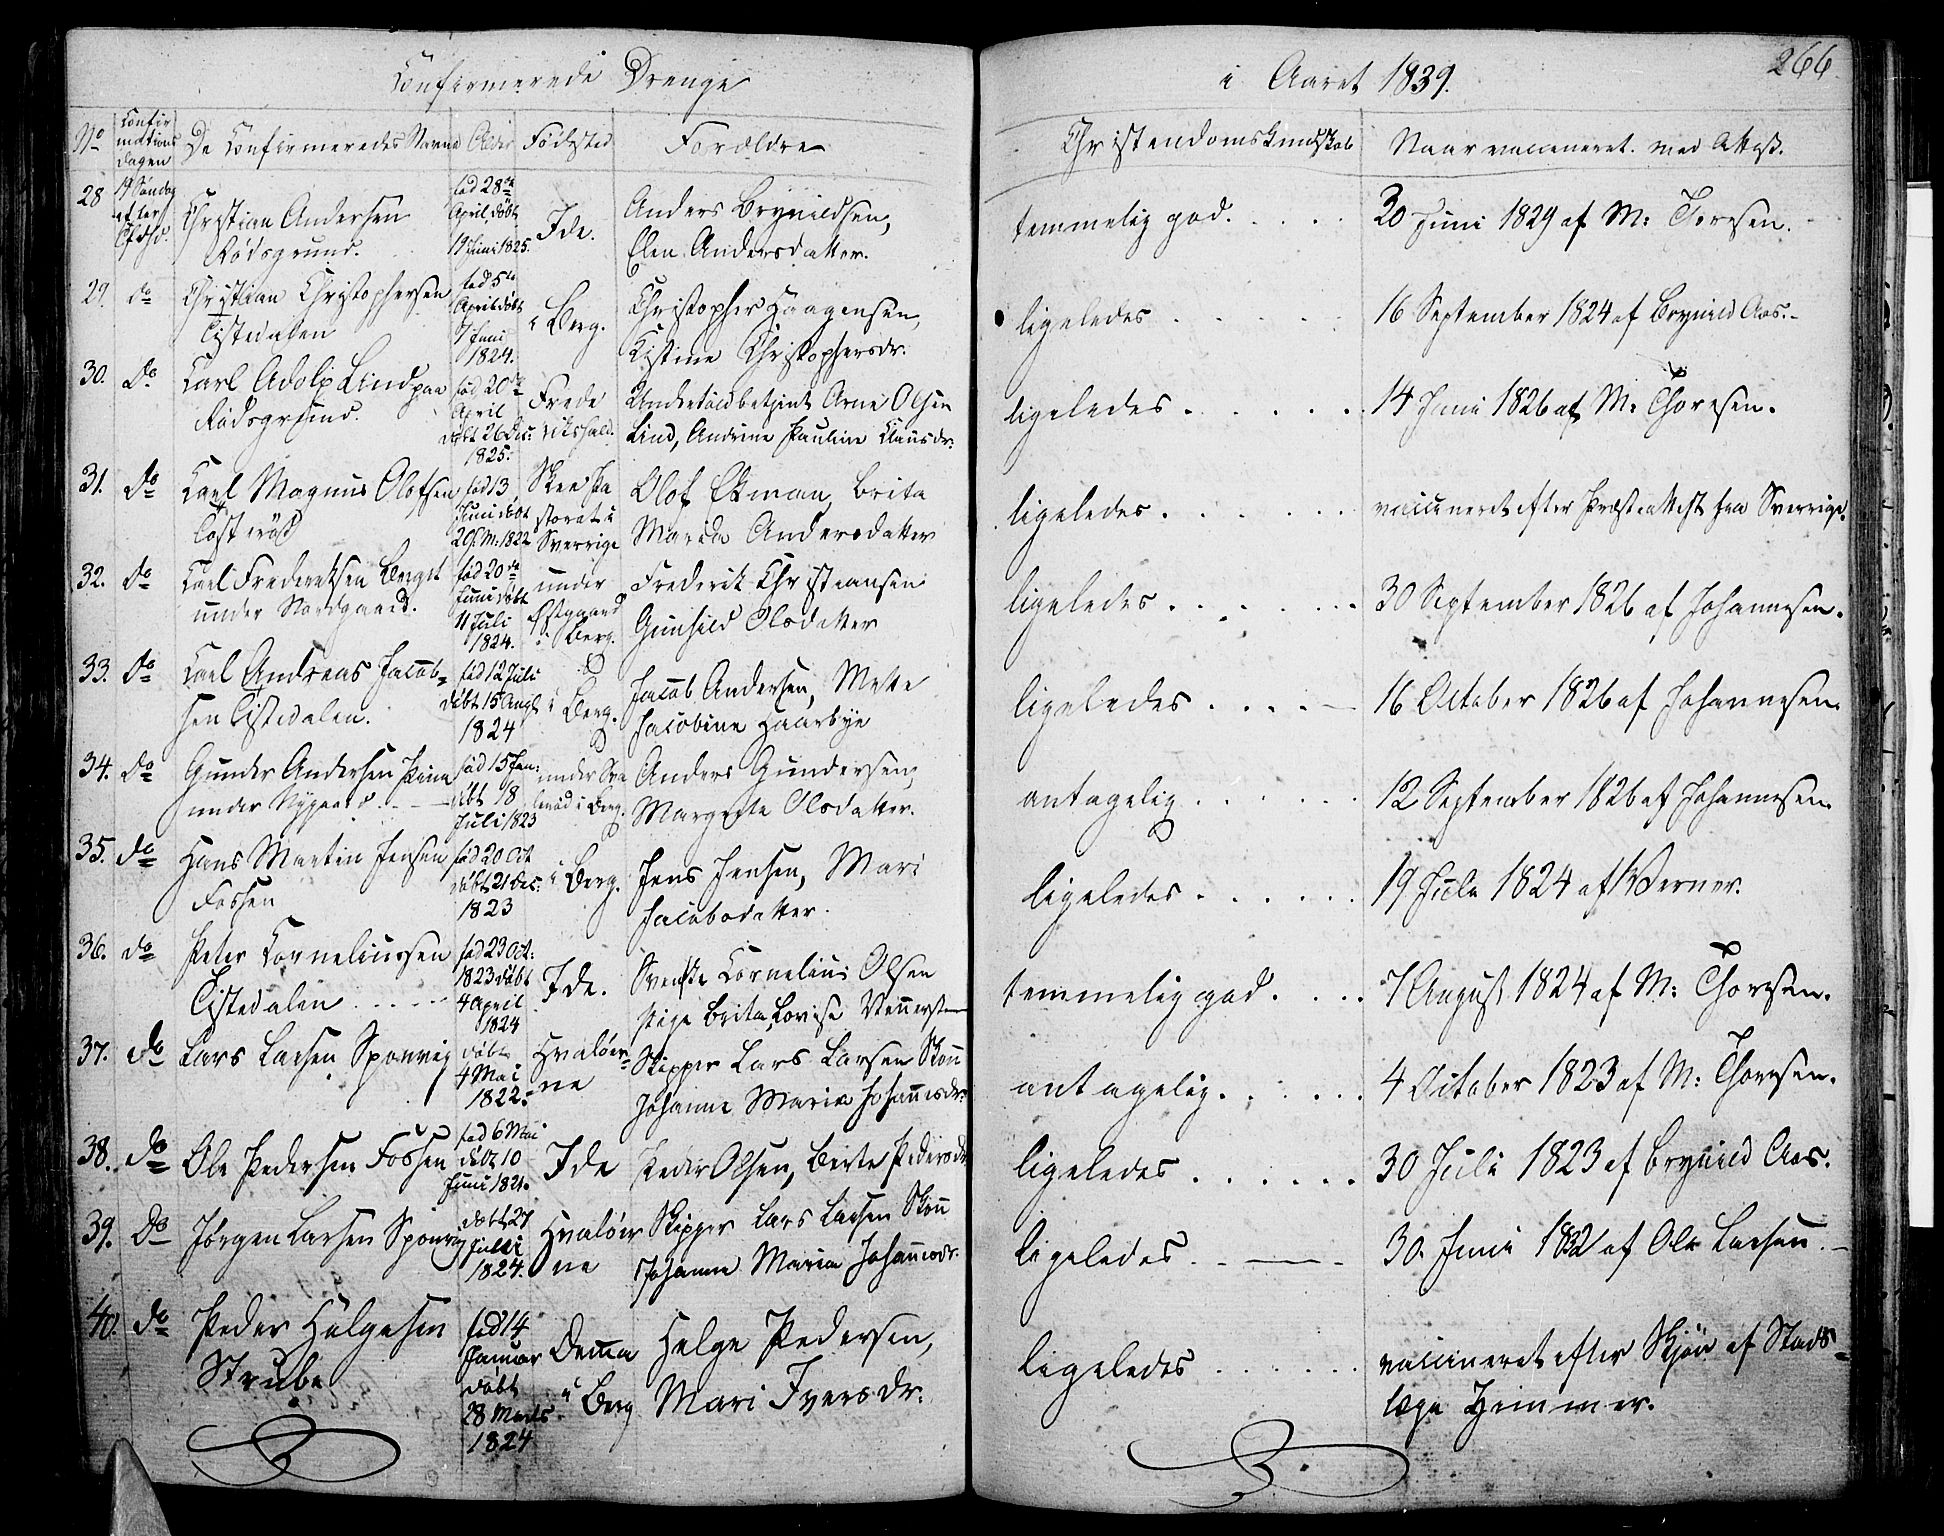 Confirmerede Drenge
i Aaret 1839.
266
No
Confirmations dagen
De Confirmeredes Navne
Alder
Fødested
Forældre
Christendomskundskab
Naar vaccineret med Attest.
28
19 Søndag efter
Christian Andersen
Rødsgrund.
fød 28de
April, døbt
19 Juni 1825.
Ide.
Anders Brynildsen,
Elen Andersdatter.
temmelig god.
30 Juni 1829 af M: Toresen.
29.
do
Christian Christophersen
Tistedalen
fød 5te
April døbt
7 Juni
1824.
i Berg.
Christopher Haagensen,
Kistine Christophersdr.
ligeledes
16 September 1824 af Brynild Aas.
30.
Do
Carl Adolp Lind paa
Rødsgrund.
fød 20de
April
døbt 26 Dec:
1825.
Frede
rikshald.
Undertoldbetjent Arne Olsen
Lind, Andrine Pauline Clausdr.
ligeledes
14 Juni 1826 af M: Thoresen.
31.
do
Carl Magnus Olofsen
fød 13
Juni døbt
Skee Pa
storat i
Sverrige
Olof Ekman, Brita
Maria Andersdatter
ligeledes
vaccineret efter Præsteattest fra Sverrige.
32.
do
Carl Frederiksen Berget
under Nordgaard.
fød 20de
Juni døbt
11 Juli
1824.
under
Østgaard
i Berg.
Frederik Christiansen
Gunhild Olsdatter
ligeledes
30 September 1826 af Johannesen.
33.
do
Carl Andreas Jacob-
sen Tistedalen.
fød 12 Juli
døbt 15 Augt
1824
i Berg.
Jacob Andersen, Mette
Jacobine Haarbye
ligeledes
16 October 1826 af Johannesen.
34.
do
Gunder Andersen
under Nygaard
fød 15 Jan:
døbt 18
Juli 1823
under
i Berg.
Anders Gundersen,
Margrete Olsdatter.
antagelig
12 September 1826 af Johannesen.
35.
do
Hans Martin Jensen
Fossen
fød 20 Oct
døbt 21 Dec:
1823
i Berg.
Jens Jensen, Mari
Jacobsdatter.
ligeledes
19 Juli 1824 af Werner.
36.
do
Peter Corneliussen
Tistedalen
fød 23 Oct:
1823 døbt
4 April
1824
Ide.
Svenske Cornelius Olsen
pige Brita Lovise
temmelig god.
7 August 1824 af M: Thoresen.
37.
do
Lars Larsen Sponvig
døbt
4 Mai
1822.
Hvaløer-
ne
Skipper Lars Larsen
Johanne Maria Johannesdr.
antagelig
4 October 1823 af M: Thoresen.
38.
do
Ole Pedersen Fossen
fød 6 Mai
døbt 10
Juni 1821.
Ide
Peder Olsen, Berte Pedersdr
ligeledes
30 Juli 1823 af Brynild Aas.
39.
Do
Jørgen Larsen Sponvig
døbt 27
Julii
1824.
Hvaløer
ne
Skipper Lars Larsen
Johanne Maria Johannesdr.
ligeledes
30. Juni 1832 af Ole Larsen.
40.
do
Peder Helgesen
Strube
fød 14
Januar
døbt
28 Marts
1824
Demma
i Berg
Helge Pedersen,
Mari Iversdr.
ligeledes
vaccineret efter Skjøn af Stads-
læge Heimmer.